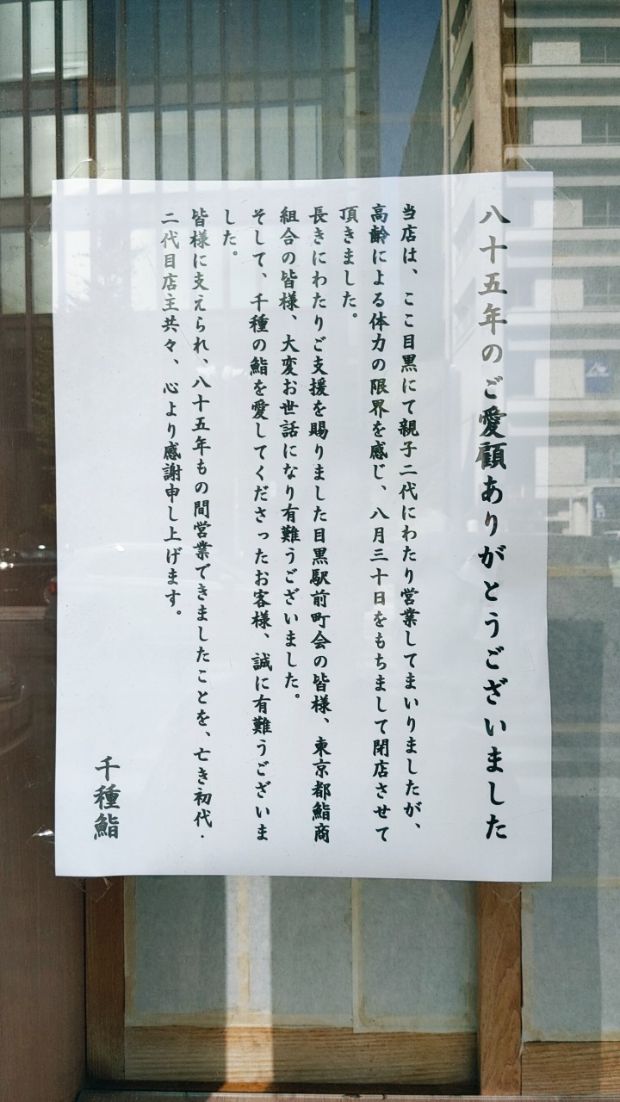 八十五年のご愛顧ありがとうございました
当店は、ここ目黒にて親子二代にわたり営業してまいりましたが、
高齢による体力の限界を感じ、八月三十日をもちまして閉店させて
頂きました。
長きにわたりご支援を賜りました目黒駅前町会の皆様、東京都鮨商
組合の皆様、大変お世話になり有難うございました。
そして、千種の鮨を愛してくださったお客様、誠に有難うございま
した。
皆様に支えられ、八十五年もの間営業できましたことを、亡き初代・
二代目店主共々、心より感謝申し上げます。
千種鮨